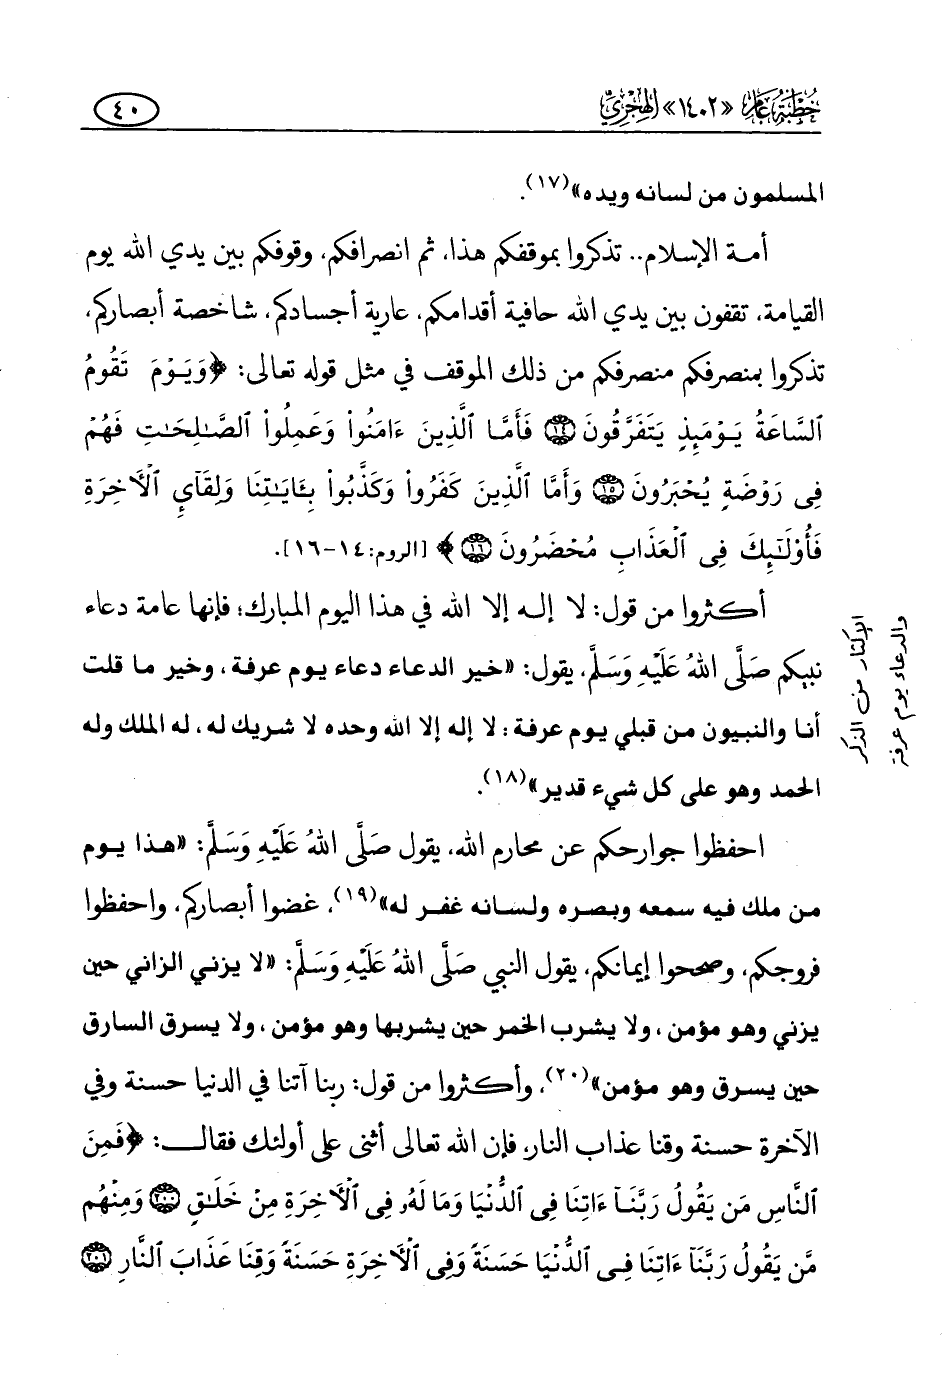 خُطْبَةُ عَامِ «١٤٠٢» الهِجْرِيِّ
٤٠
المسلمون من لسانه ويده»(١٧).
أمة الإسلام.. تذكروا بموقفكم هذا، ثم انصرافكم، وقوفكم بين يدي الله يوم
القيامة، تقفون بين يدي الله حافية أقدامكم، عارية أجسادكم، شاخصة أبصاركم،
تذكروا بمنصرفكم منصرفكم من ذلك الموقف في مثل قوله تعالى: ﴿وَيَوْمَ تَقُومُ
ٱلسَّاعَةُ يَوْمَئِذٍ يَتَفَرَّقُونَ ١٤ فَأَمَّا ٱلَّذِينَ ءَامَنُوا۟ وَعَمِلُوا۟ ٱلصَّٰلِحَٰتِ فَهُمْ
فِى رَوْضَةٍ يُحْبَرُونَ ١٥ وَأَمَّا ٱلَّذِينَ كَفَرُوا۟ وَكَذَّبُوا۟ بِـَٔايَٰتِنَا وَلِقَآئِ ٱلْـَٔاخِرَةِ
فَأُو۟لَٰٓئِكَ فِى ٱلْعَذَابِ مُحْضَرُونَ ١٦﴾ [الروم: ١٤-١٦].
أكثروا من قول: لا إله إلا الله في هذا اليوم المبارك؛ فإنها عامة دعاء
نبيكم صَلَّى اللهُ عَلَيْهِ وَسَلَّمَ، يقول: «خير الدعاء دعاء يوم عرفة، وخير ما قلت
أنا والنبيون من قبلي يوم عرفة: لا إله إلا الله وحده لا شريك له، له الملك وله
الحمد وهو على كل شيء قدير»(١٨).
احفظوا جوارحكم عن محارم الله، يقول صَلَّى اللهُ عَلَيْهِ وَسَلَّمَ: «هذا يوم
من ملك فيه سمعه وبصره ولسانه غفر له»(١٩)، غضوا أبصاركم، واحفظوا
فروجكم، وصححوا إيمانكم، يقول النبي صَلَّى اللهُ عَلَيْهِ وَسَلَّمَ: «لا يزني الزاني حين
يزني وهو مؤمن، ولا يشرب الخمر حين يشربها وهو مؤمن، ولا يسرق السارق
حين يسرق وهو مؤمن»(٢٠)، وأكثروا من قول: ربنا آتنا في الدنيا حسنة وفي
الآخرة حسنة وقنا عذاب النار، فإن الله تعالى أثنى على أولئك فقال: ﴿فَمِنَ
ٱلنَّاسِ مَن يَقُولُ رَبَّنَآ ءَاتِنَا فِى ٱلدُّنْيَا وَمَا لَهُۥ فِى ٱلْـَٔاخِرَةِ مِنْ خَلَٰقٍ ٢٠٠ وَمِنْهُم
مَّن يَقُولُ رَبَّنَآ ءَاتِنَا فِى ٱلدُّنْيَا حَسَنَةً وَفِى ٱلْـَٔاخِرَةِ حَسَنَةً وَقِنَا عَذَابَ ٱلنَّارِ ٢٠١
الإكثار من الذكر
والدعاء يوم عرفة